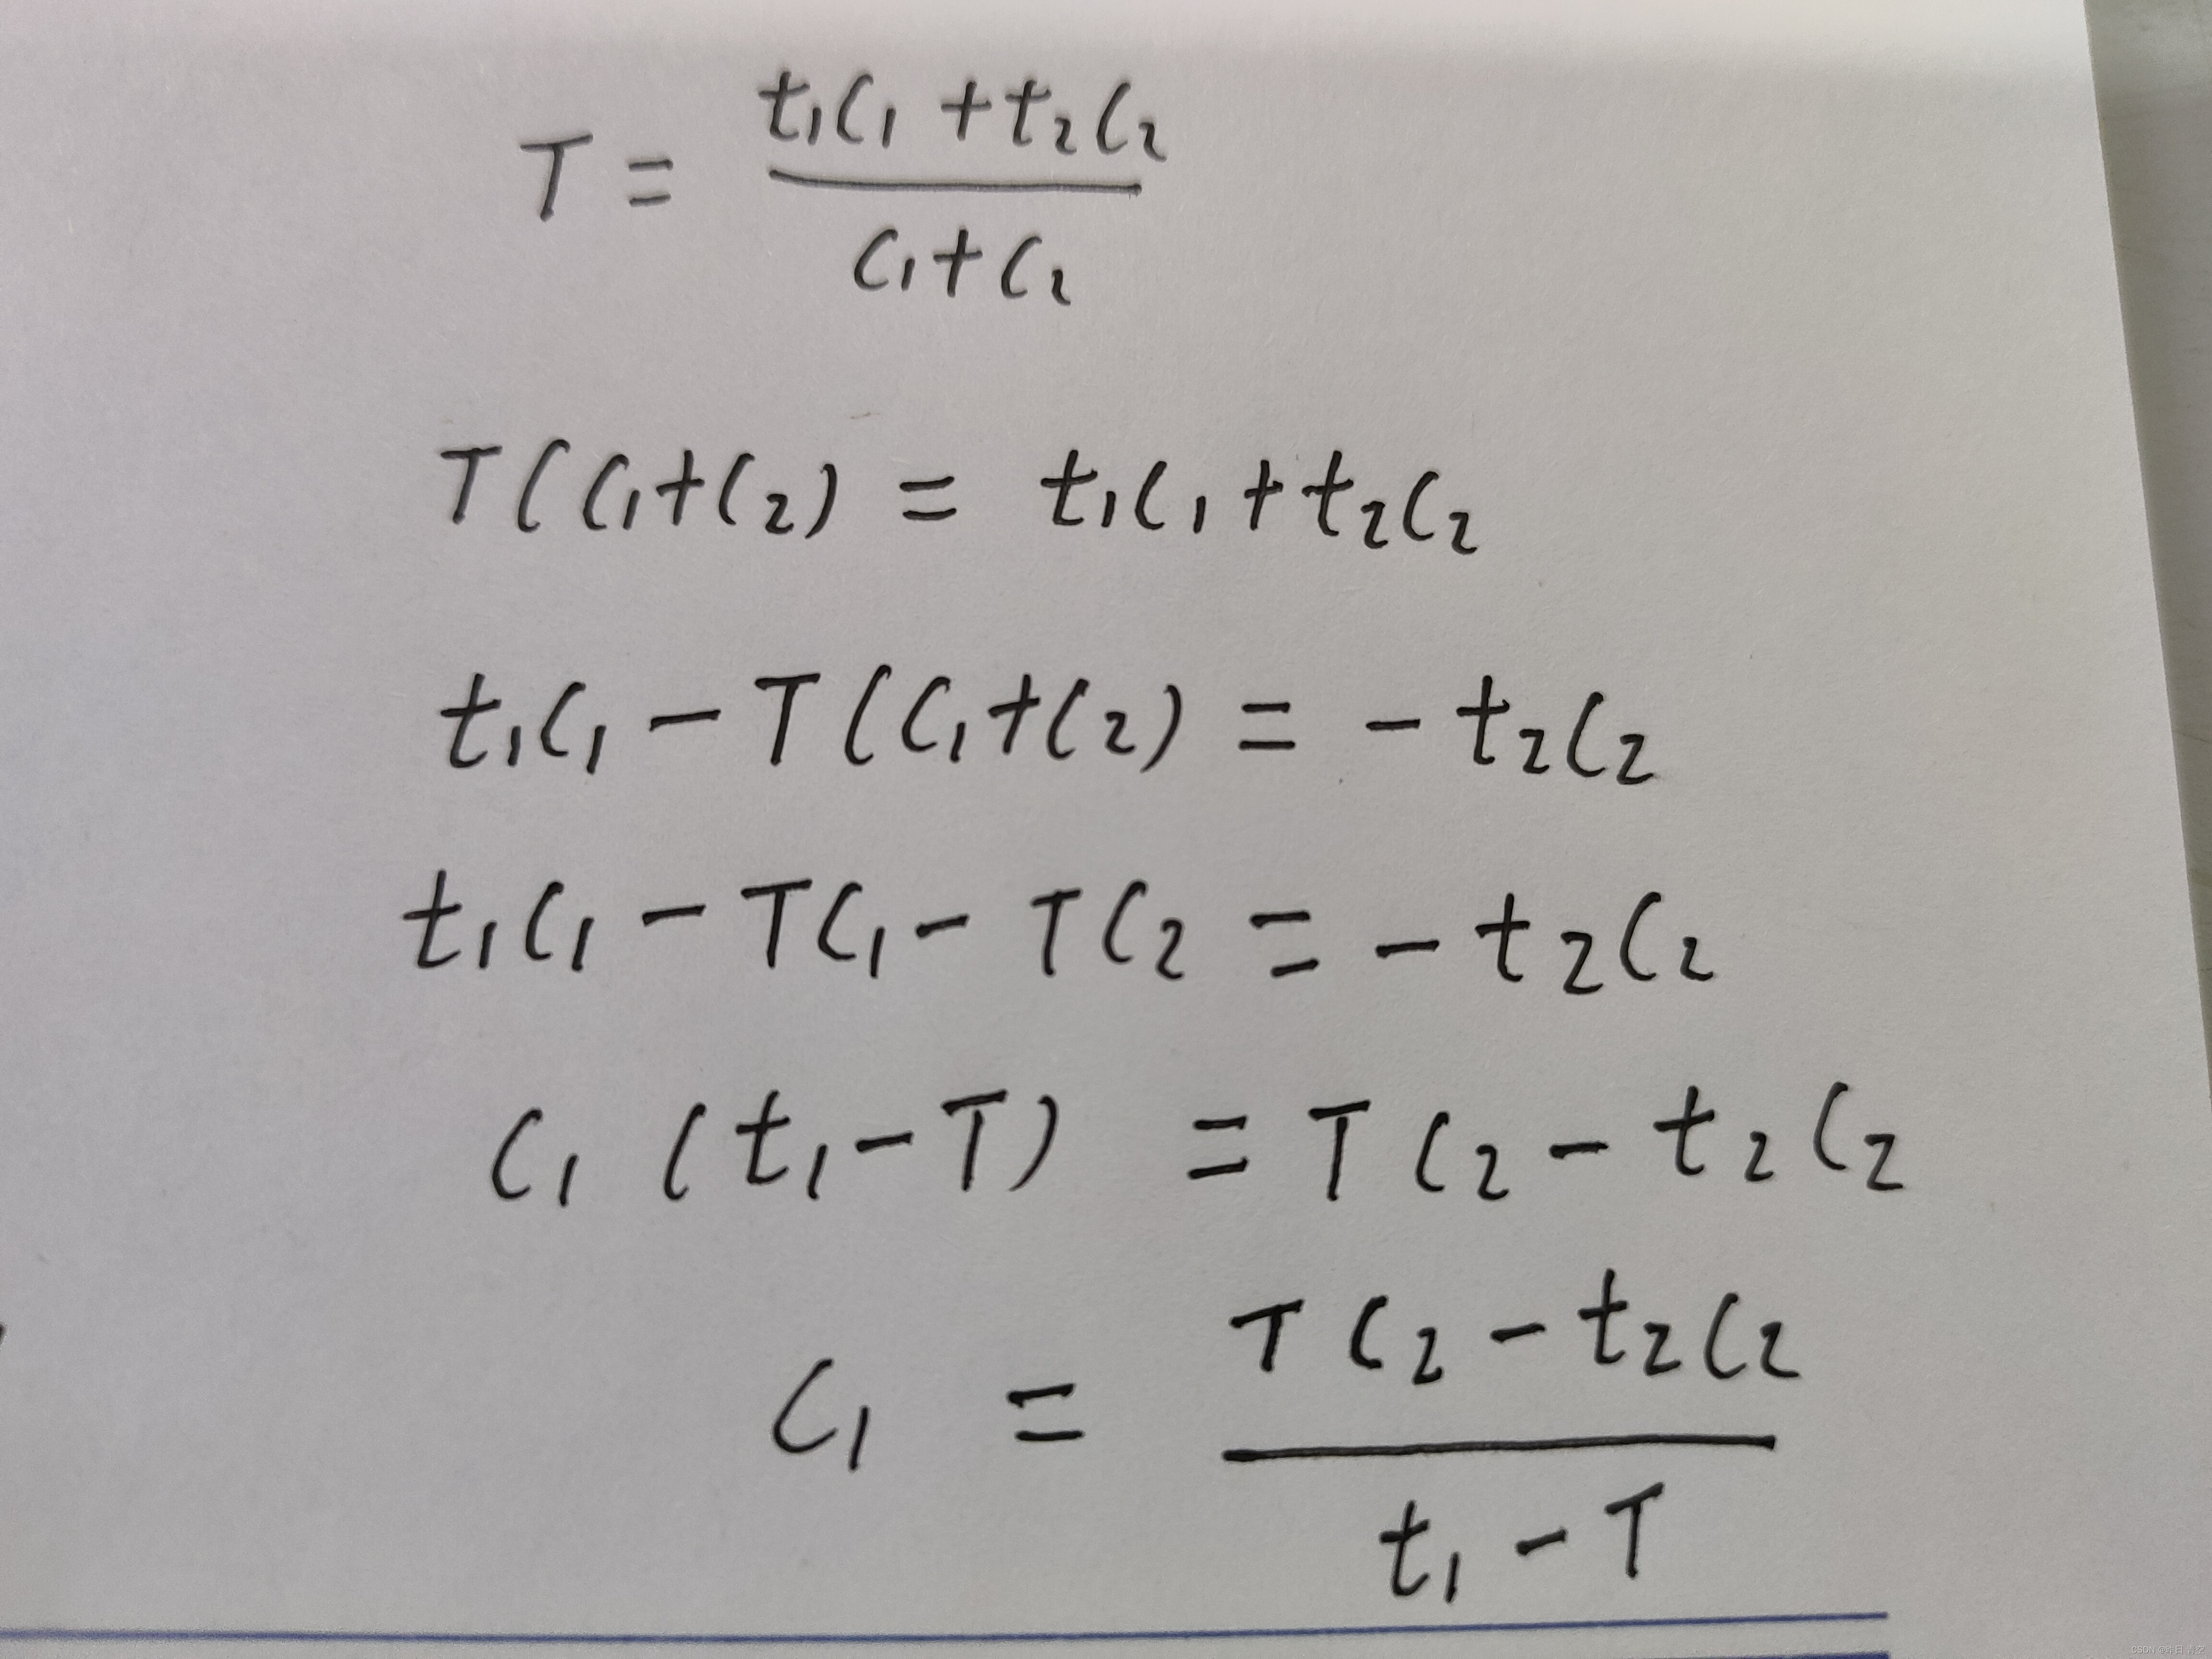 T = (t₁c₁ + t₂c₂) / (c₁ + c₂)
T(c₁+c₂) = t₁c₁ + t₂c₂
t₁c₁ − T(c₁+c₂) = − t₂c₂
t₁c₁ − Tc₁ − Tc₂ = − t₂c₂
c₁(t₁−T) = Tc₂ − t₂c₂
c₁ = (Tc₂ − t₂c₂) / (t₁ − T)
CSDN